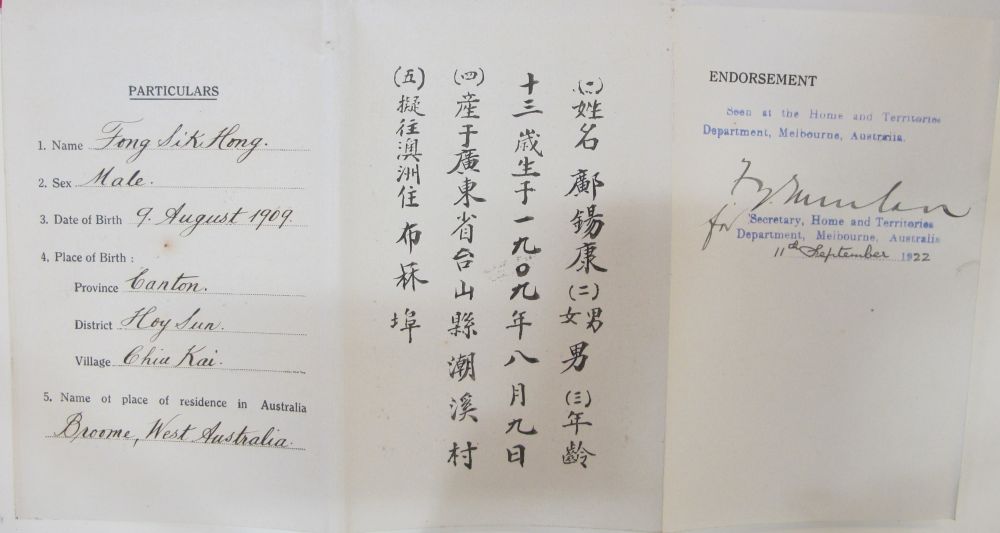 PARTICULARS
1. Name Fong Sik Hong.
2. Sex Male.
3. Date of Birth 9. August 1909.
4. Place of Birth :
Province Canton.
District Hoy Sun.
Village Chiu Kai.
5. Name of place of residence in Australia
Broome, West Australia.
(一)姓名 鄺錫康(二)男女 男(三)年齡
十三歲生于一九〇九年八月九日
(四)產于廣東省台山縣潮溪村
(五)擬往澳洲住布冧埠
ENDORSEMENT
Seen at the Home and Territories
Department, Melbourne, Australia.
for Secretary, Home and Territories
Department, Melbourne, Australia
11th September 1922